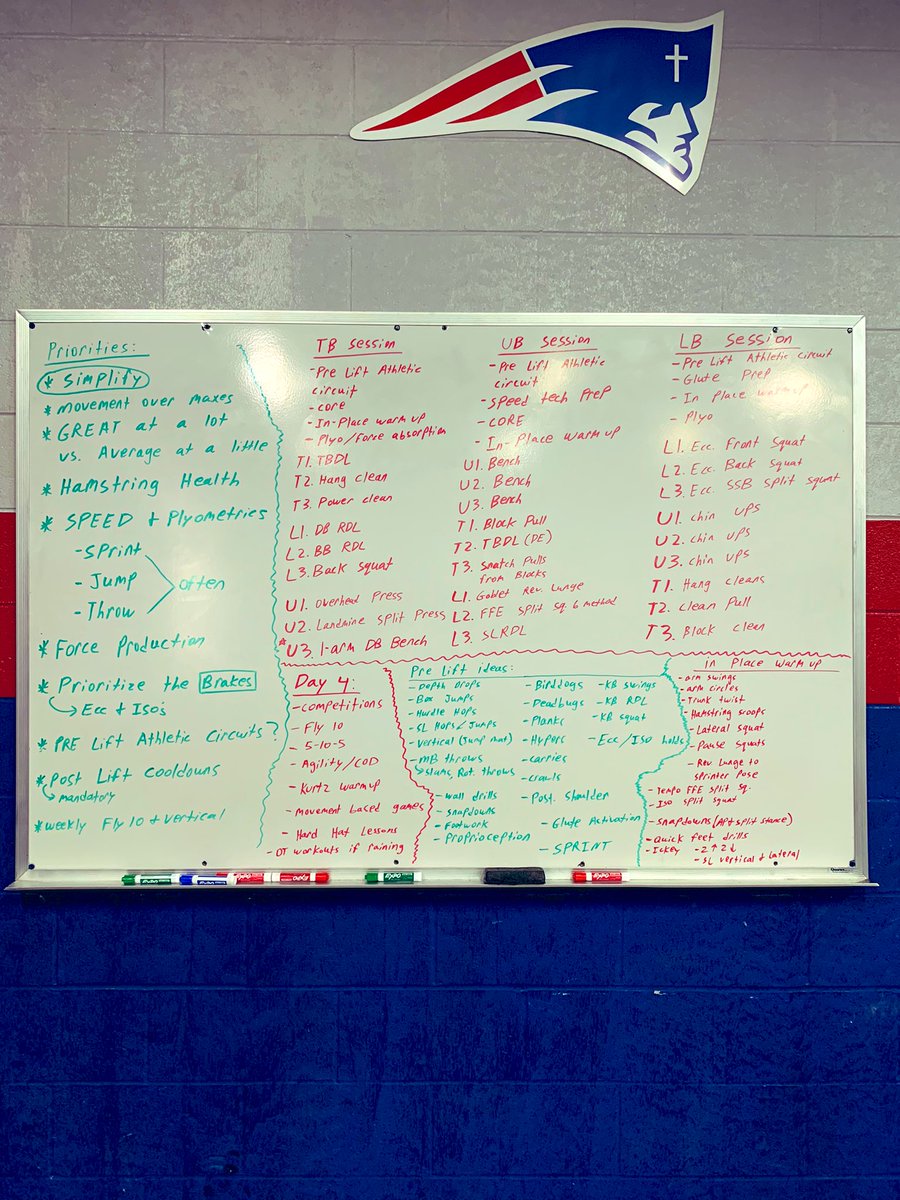 Priorities:
* Simplify
* movement over maxes
* GREAT at a lot
vs. Average at a little
* Hamstring Health
* SPEED + Plyometrics
- Sprint
- Jump
- Throw
often
* Force Production
* Prioritize the Brakes
Ecc + Iso's
* PRE Lift Athletic Circuits?
* Post Lift Cooldowns
mandatory
* weekly Fly 10 + vertical
TB Session
- Pre Lift Athletic
circuit
- core
- In-Place warm up
- Plyo/force absorption
T1. TBDL
T2. Hang clean
T3. Power clean
L1. DB RDL
L2. BB RDL
L3. Back squat
U1. overhead Press
U2. Landmine split Press
U3. 1-arm DB Bench
UB Session
- Pre Lift Athletic
circuit
- Speed tech prep
- CORE
- In-Place warm up
U1. Bench
U2. Bench
U3. Bench
T1. Block Pull
T2. TBDL (DE)
T3. Snatch Pulls
from Blocks
L1. Goblet Rev. Lunge
L2. FFE split sq. 6 method
L3. SLRDL
LB Session
- Pre Lift Athletic circuit
- Glute Prep
- In Place warm up
- Plyo
L1. Ecc. Front Squat
L2. Ecc. Back squat
L3. Ecc. SSB split squat
U1. chin ups
U2. chin ups
U3. chin ups
T1. Hang cleans
T2. clean Pull
T3. Block clean
Day 4:
- competitions
- Fly 10
- 5-10-5
- Agility/COD
- Kurtz warmup
- movement based games
- Hard Hat Lessons
- OT workouts if raining
Pre Lift ideas:
- Depth Drops
- Box Jumps
- Hurdle Hops
- SL Hops/Jumps
- Vertical (Jump mat)
- MB throws
slams, Rot. throws
- wall drills
- snapdowns
- Footwork
- Proprioception
- Birddogs
- Deadbugs
- Planks
- Hypers
- carries
- crawls
- Post. Shoulder
- Glute Activation
- SPRINT
- KB swings
- KB RDL
- KB squat
- Ecc/Iso holds
in Place warm up
- arm swings
- arm circles
- Trunk twist
- Hamstring scoops
- Lateral squat
- Pause squats
- Rev. Lunge to
sprinter pose
- Tempo FFE split sq.
- Iso split squat
- snapdowns (AP+split stance)
- Quick feet drills
- Ickey
- 2↑2↓
- SL vertical + Lateral